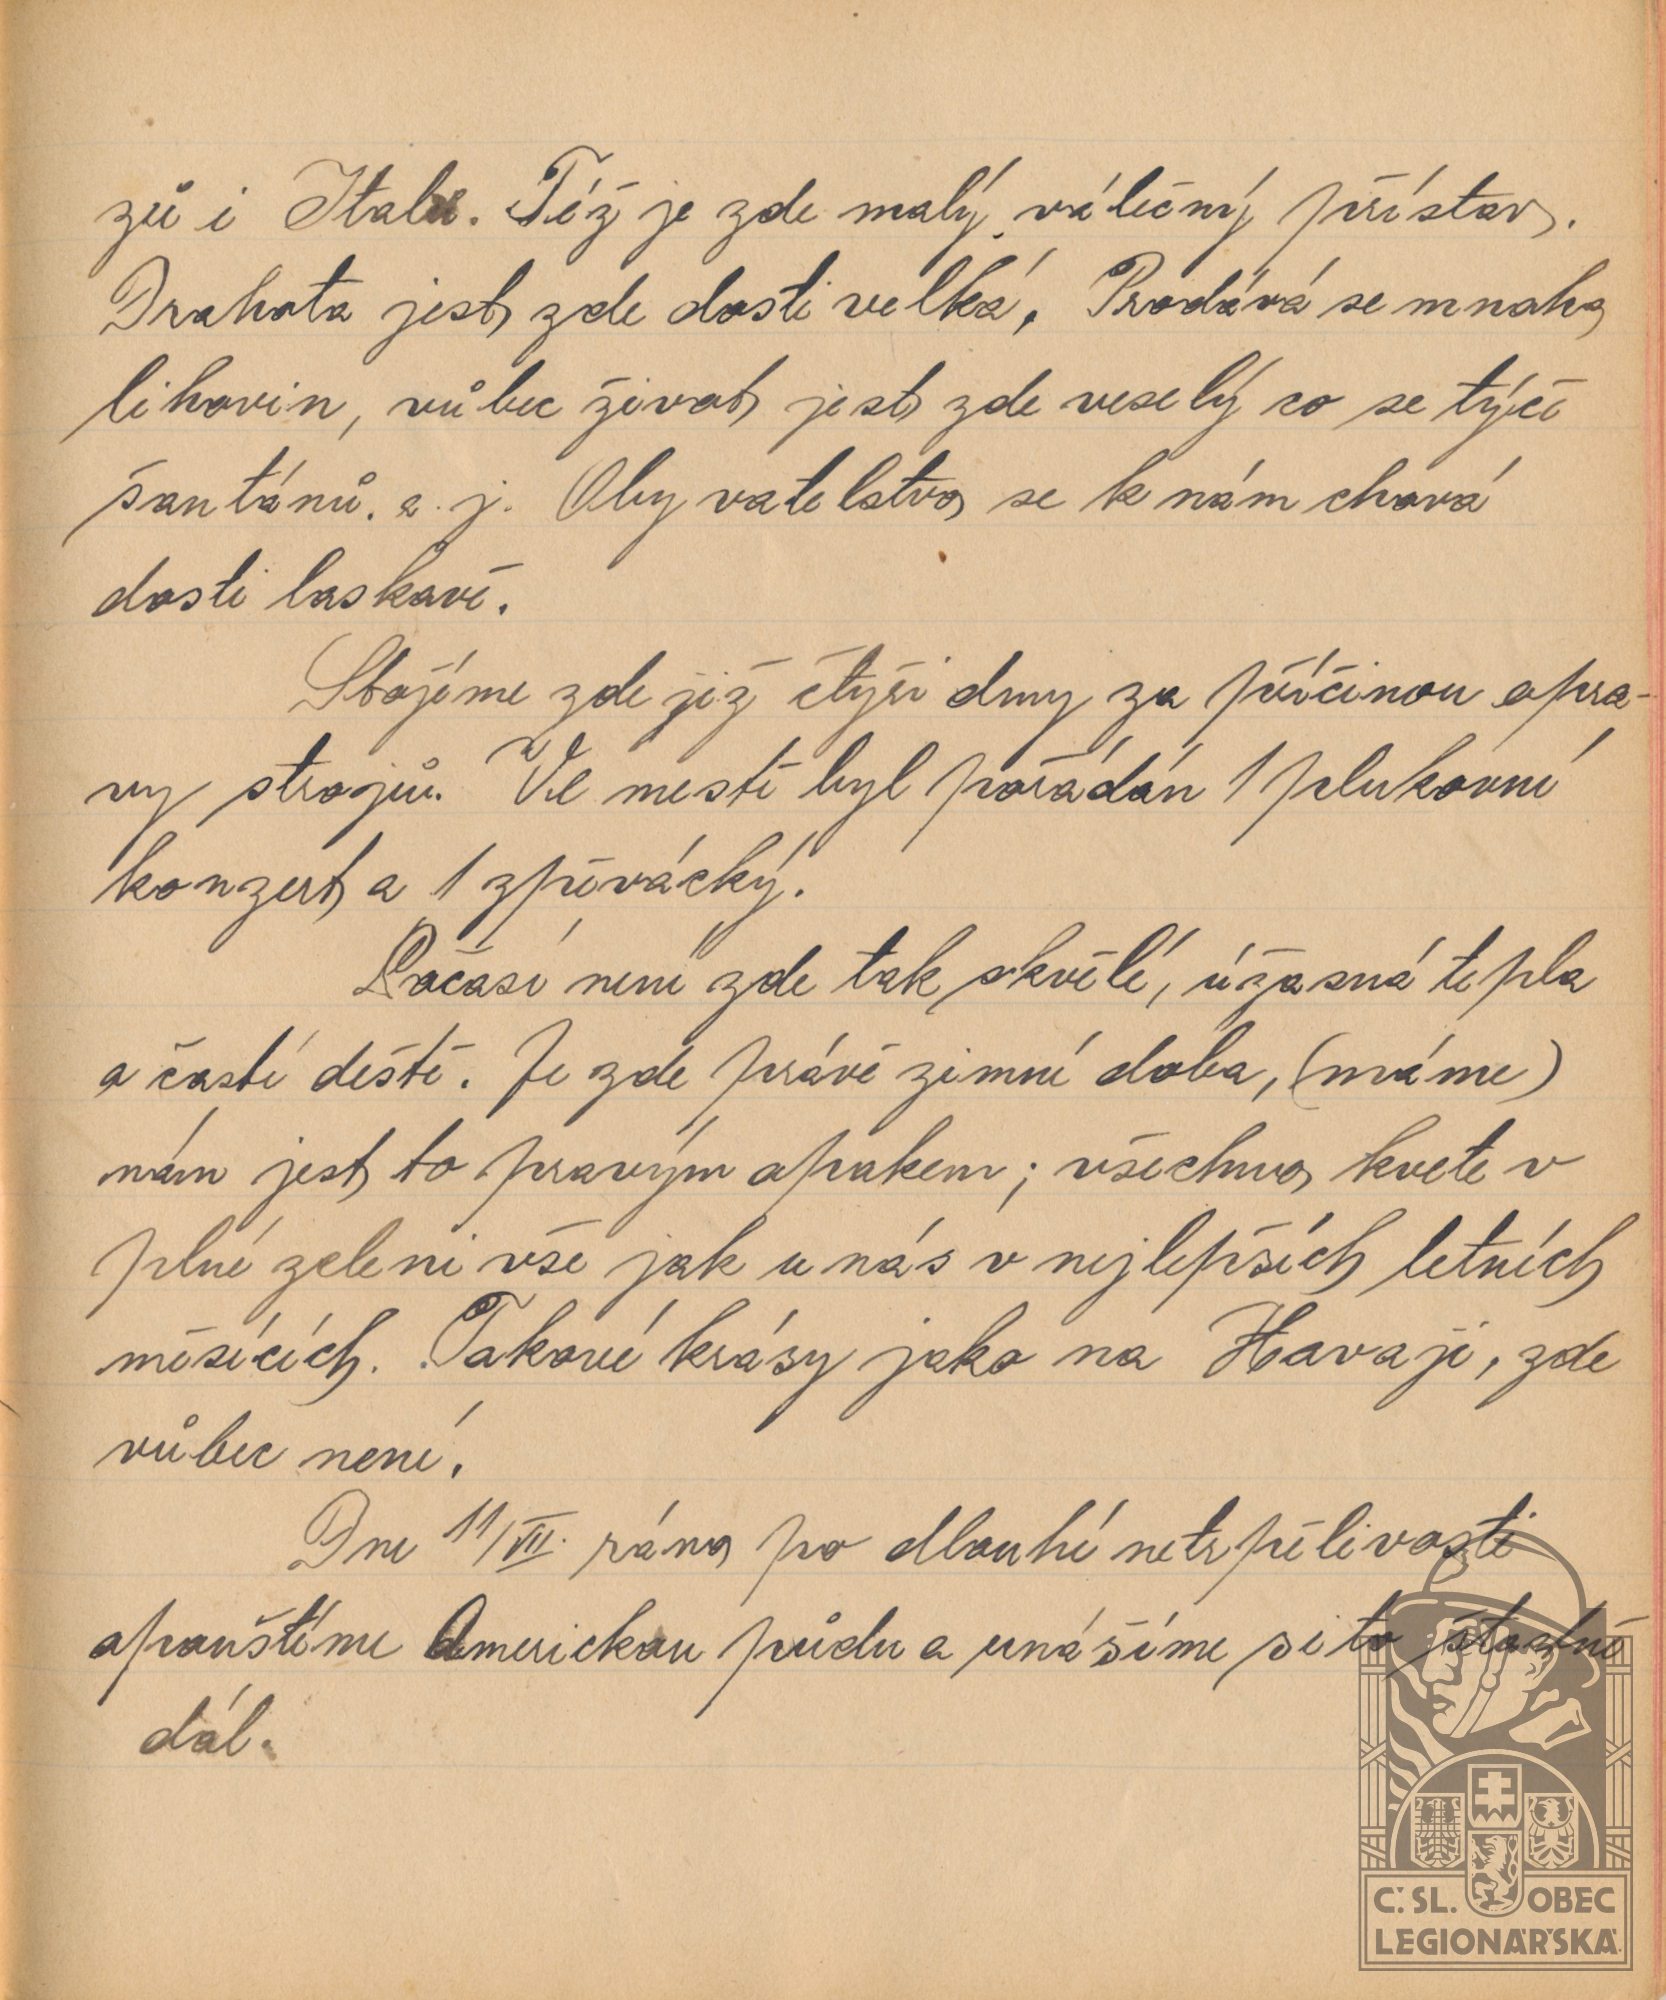 zů i Italů. Též je zde malý válečný přístav.
Drahota jest zde dosti velká, Prodává se mnoho
lihovin, vůbec život jest zde veselý co se týče
šantánů. a. j. Obyvatelstvo se k nám chová
dosti laskavě.
Stojíme zde již čtyři dny za příčinou opra-
vy strojů. Ve mestě byl pořádán 1 plukovní
konzert a 1 zpěvácký.
Počasí není zde tak skvělé, úžasná tepla
a časté deště. Je zde právě zimní doba, (máme)
nám jest to pravým opakem; všechno kvete v
plné zeleni vše jak u nás v nejlepších letních
měsících. Takové krásy jako na Havaji, zde
vůbec není.
Dne 11/VII. ráno po dlouhé netrpělivosti
opouštíme Americkou půdu a unášíme si to šťastně
dál.
Č. SL. OBEC
LEGIONÁŘSKÁ